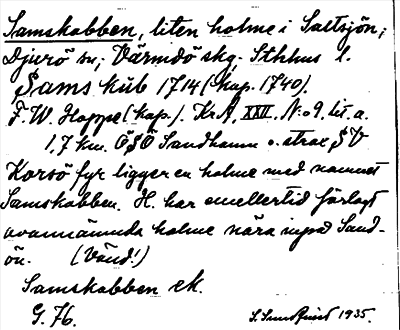 Samskobben, liten holme i Saltsjön;
Djurö sn; Värmdö skg. Sthlms l.
Sams kub 1714 (kop. 1740).
F. W. Hoppe (kop.). KrA, XXII. N:o 9. lit. a.
1,7 km. ÖSÖ Sandhamn o. strax SV
Korsö fyr ligger en holme med namnet
Samskobben. H. har emellertid förlagt
ovannämnda holme nära inpå Sand-
ön. (Vänd!)
Samskobben ek.
G. 76.
S. Sundqvist 1935.